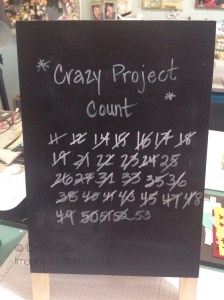 *Crazy Project
Count *
11 12 14 15 16 17 18
19 21 22 23 24 25
26 27 31 33 35 36
38 40 41 43 45 47 48
49 50 51 52 53